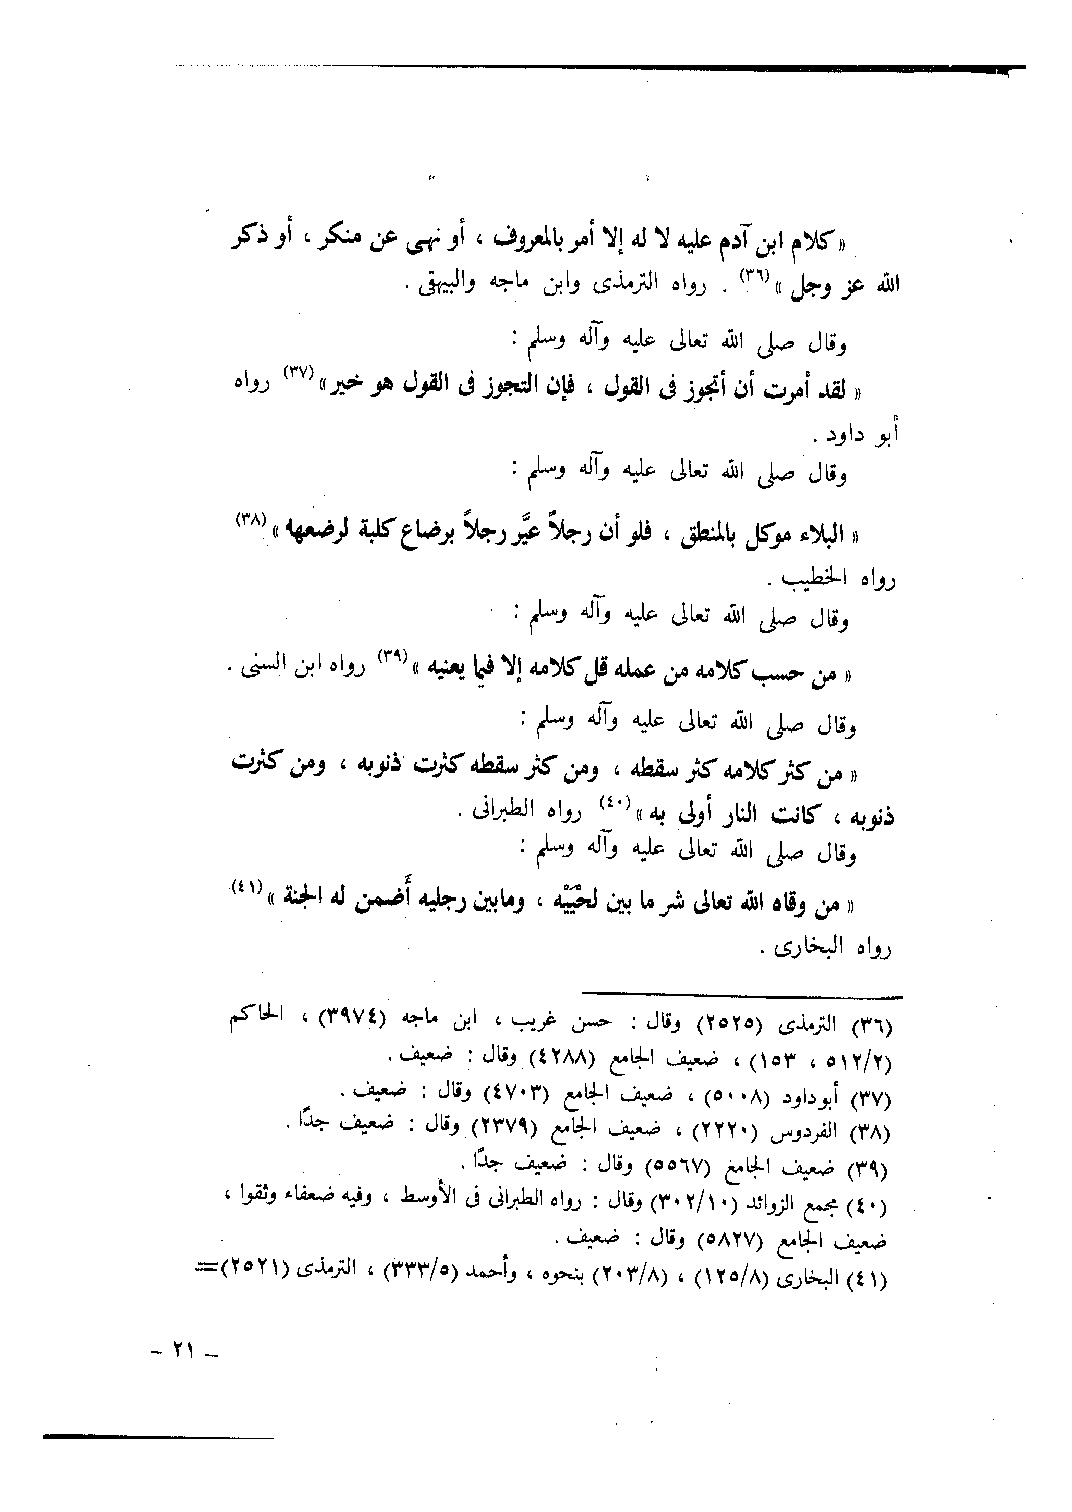 « كلام ابن آدم عليه لا له إلا أمر بالمعروف ، أو نهى عن منكر ، أو ذكر
الله عز وجل » (٣٦) . رواه الترمذى وابن ماجه والبيهقى .
وقال صلى الله تعالى عليه وآله وسلم :
« لقد أمرت أن أتجوز فى القول ، فإن التجوز فى القول هو خير» (٣٧) رواه
أبو داود .
وقال صلى الله تعالى عليه وآله وسلم :
« البلاء موكل بالمنطق ، فلو أن رجلاً عيَّر رجلاً برضاع كلبة لرضعها » (٣٨)
رواه الخطيب .
وقال صلى الله تعالى عليه وآله وسلم :
« من حسب كلامه من عمله قل كلامه إلا فيما يعنيه » (٣٩) رواه ابن السنى .
وقال صلى الله تعالى عليه وآله وسلم :
« من كثر كلامه كثر سقطه ، ومن كثر سقطه كثرت ذنوبه ، ومن كثرت
ذنوبه ، كانت النار أولى به » (٤٠) رواه الطبرانى .
وقال صلى الله تعالى عليه وآله وسلم :
« من وقاه الله تعالى شر ما بين لحْيَيْه ، ومابين رجليه أَضمن له الجنة » (٤١)
رواه البخارى .
(٣٦) الترمذى (٢٥٢٥) وقال : حسن غريب ، ابن ماجه (٣٩٧٤) ، الحاكم
(٥١٢/٢ ، ١٥٣) ، ضعيف الجامع (٤٢٨٨) وقال : ضعيف .
(٣٧) أبوداود (٥٠٠٨) ، ضعيف الجامع (٤٧٠٣) وقال : ضعيف .
(٣٨) الفردوس (٢٢٢٠) ، ضعيف الجامع (٢٣٧٩) وقال : ضعيف جدًا .
(٣٩) ضعيف الجامع (٥٥٦٧) وقال : ضعيف جدًا .
(٤٠) مجمع الزوائد (٣٠٢/١٠) وقال : رواه الطبرانى فى الأوسط ، وفيه ضعفاء وثقوا ،
ضعيف الجامع (٥٨٢٧) وقال : ضعيف .
(٤١) البخارى (١٢٥/٨) ، (٢٠٣/٨) بنحوه ، وأحمد (٣٣٣/٥) ، الترمذى (٢٥٢١)=
– ٢١ –